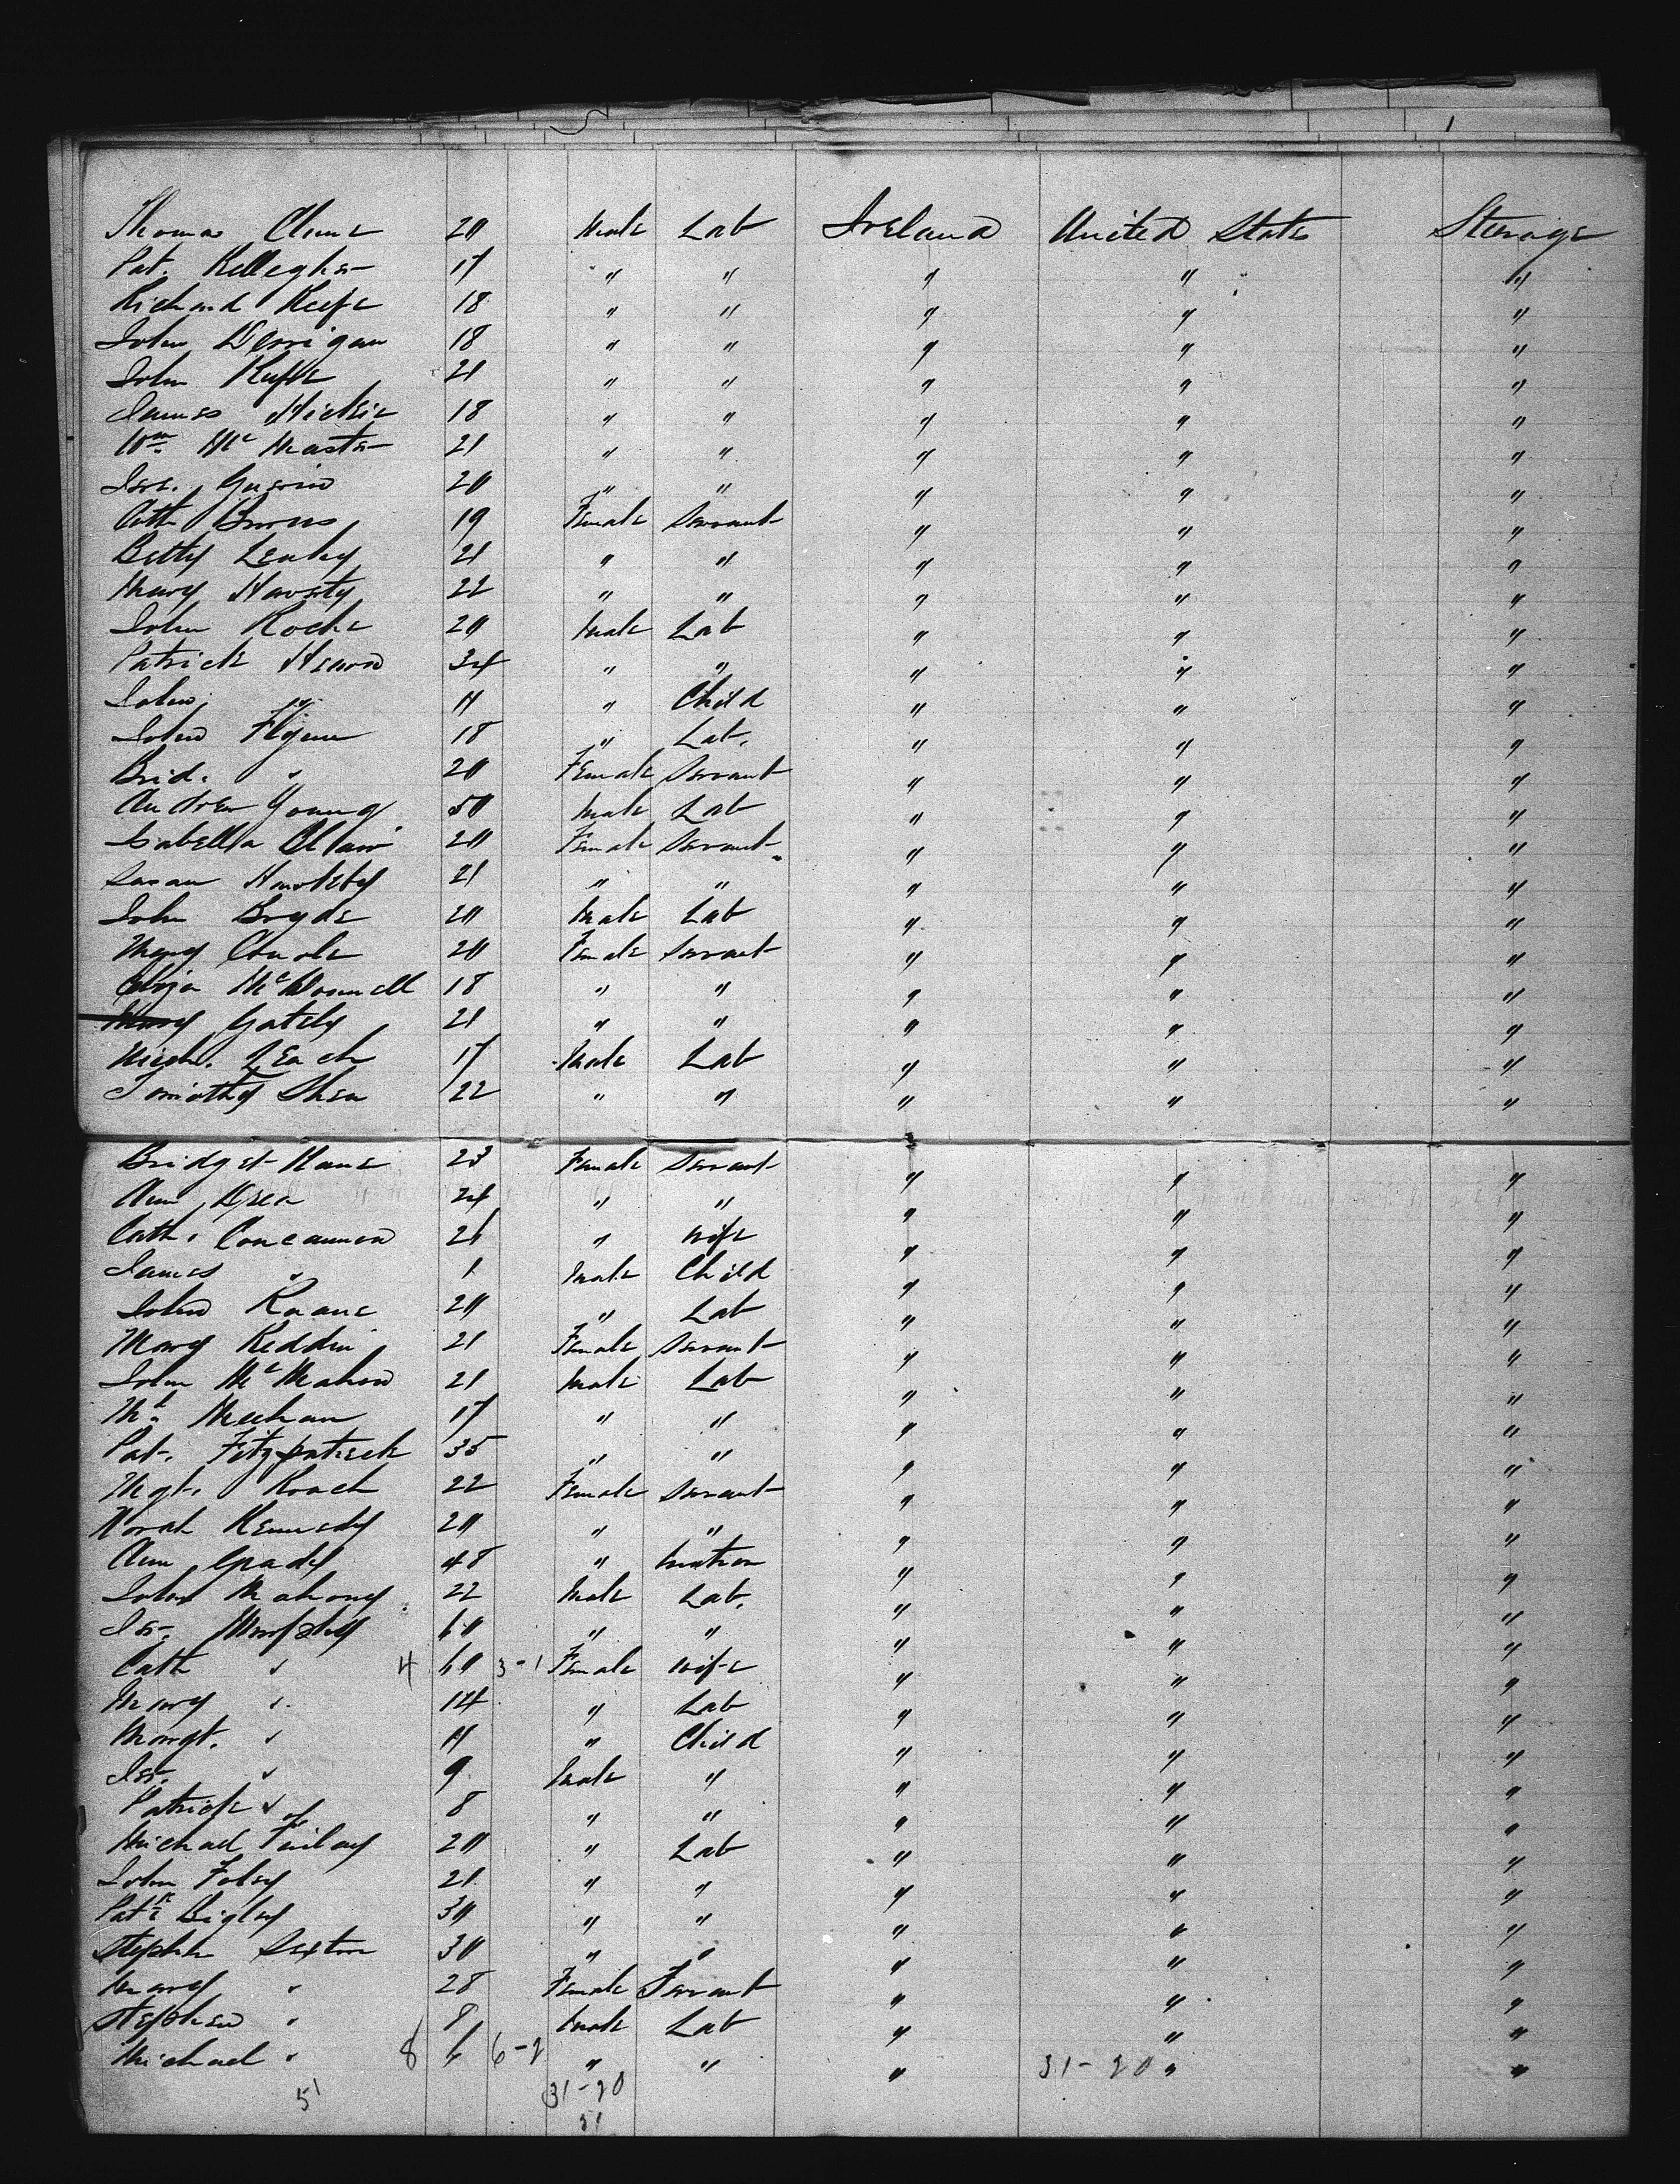 Thomas Clune 20 Male Lab Ireland United States Steerage
Pat. Kellegher 17 " " " " "
Richard Keefe 18 " " " " "
John Derrigan 18 " " " " "
John Keeffe 21 " " " " "
James Hickie 18 " " " " "
Wm Mc Master 21 " " " " "
Jere. Guerin 20 " " " " "
Cath Burns 19 Female Servant " " "
Betty Leahy 21 " " " " "
Mary Hirsty 22 " " " " "
John Roche 20 Male Lab " " "
Patrick Hearon 34 " " " " "
John " 11 " Child " " "
John Flynn 18 " Lab. " " "
Brid. " 20 Female Servant " " "
Andrew Young 50 Male Lab " " "
Isabella Clair 20 Female Servant " " "
Susan 21 " " " " "
John Bryde 20 Male Lab " " "
Mary 20 Female Servant " " "
Eliza McDonnell 18 " " " " "
Mary Gately 21 " " " " "
Mich. Leach 17 Male Lab " " "
Timothy Shea 22 " " " " "
Bridget Kane 23 Female Servant " " "
Ann 24 " " " " "
Cath. Concannon 26 " Wife " " "
James " 1 Male Child " " "
John Ruane 20 " Lab " " "
Mary Reddin 21 Female Servant " " "
John McMahon 21 Male Lab " " "
Mt. Meehan 17 " " " " "
Pat. Fitzpatrick 35 " " " " "
Mgt. Roach 22 Female Servant " " "
Norah Kennedy 20 " " " " "
Ann Grady 48 " Matron " " "
John Mahony 22 Male Lab. " " "
Jer. Murphy 60 " " " " "
Cath " 4 60 3-1 Female Wife " " "
Mary " 14 " Lab " " "
Margt. " 11 " Child " " "
Jer. " 9 Male " " " "
Patrick " 8 " " " " "
Michael Finlay 20 " Lab " " "
John Foley 21 " " " " "
Patk Bigley 30 " " " " "
Stephen Sexton 30 " " " " "
Mary " 28 Female Servant " " "
Stephen " 8 Male Lab " " "
Michael " 8 6 6-2 " " " 31-20 " "
51 31-20
51